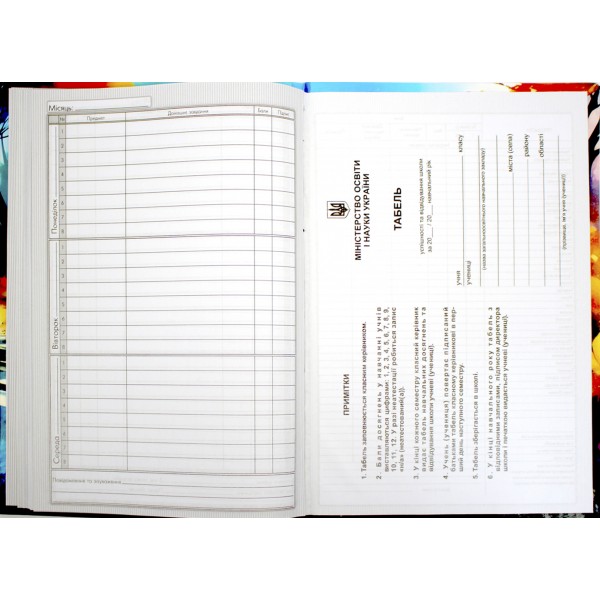 Місяць:
№ Предмет Домашнє завдання Бали Підпис
Понеділок
1
2
3
4
5
6
7
8
Вівторок
1
2
3
4
5
6
7
8
Середа
1
2
3
4
5
6
7
8
Повідомлення та зауваження
МІНІСТЕРСТВО ОСВІТИ
І НАУКИ УКРАЇНИ
ТАБЕЛЬ
успішності та відвідування школи
за 20___/ 20___ навчальний рік
учня
учениці класу
(назва загальноосвітнього навчального закладу)
міста (села)
району
області
(прізвище, ім'я учня (учениці))
ПРИМІТКИ
1. Табель заповнюється класним керівником.
2. Бали досягнень у навчанні учнів
виставляються цифрами: 1, 2, 3, 4, 5, 6, 7, 8, 9,
10, 11, 12. У разі неатестації робиться запис
н/а (неатестований(а)).
3. У кінці кожного семестру класний керівник
видає табель навчальних досягнень та
відвідування школи учневі (учениці).
4. Учень (учениця) повертає підписаний
батьками табель класному керівникові в пер-
ший день наступного семестру.
5. Табель зберігається в школі.
6. У кінці навчального року табель з
відповідними записами, підписом директора
школи і печаткою видається учневі (учениці).